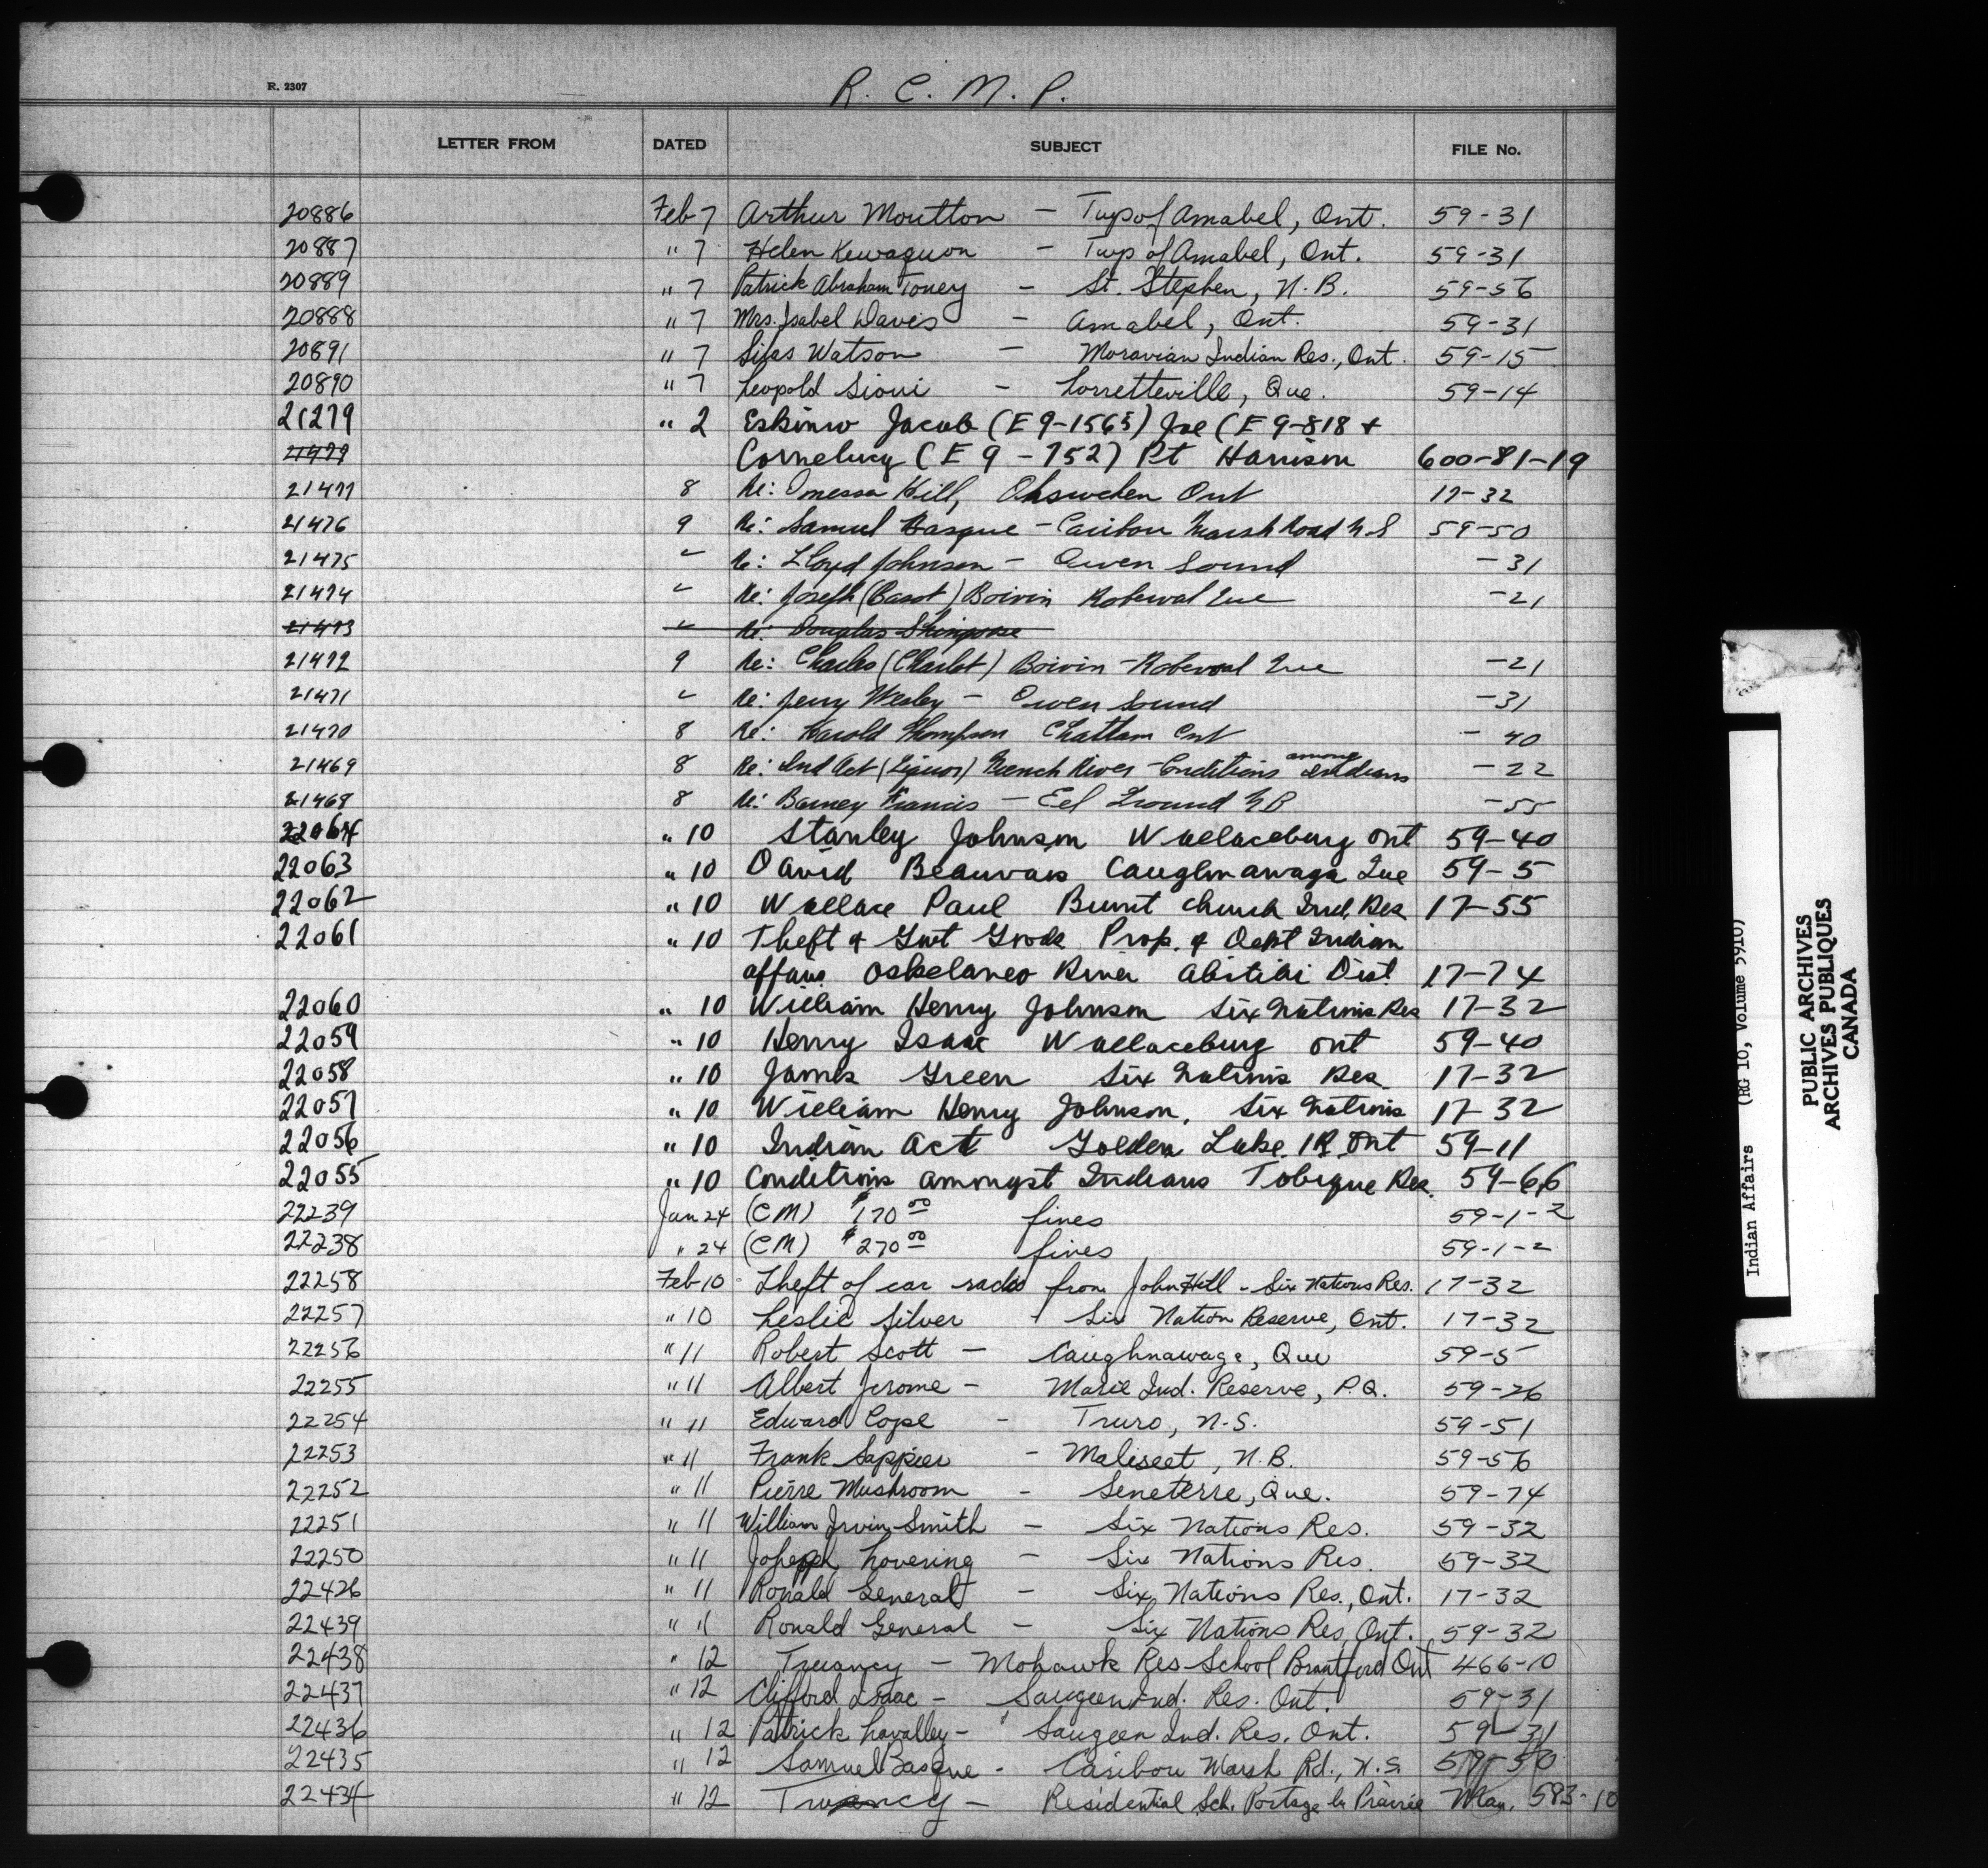 R. 2307
R. C. M. P.
LETTER FROM DATED SUBJECT FILE No.
20886 Feb 7 Arthur Moutton - Twp of Amabel, Ont. 59-31
20887 " 7 Helen Kewaquon - Twp of Amabel, Ont. 59-31
20889 " 7 Patrick Abraham Toney - St. Stephen, N.B. 59-56
20888 " 7 Mrs. Isabel Davis - Amabel, Ont. 59-31
20891 " 7 Silas Watson - Moravian Indian Res., Ont. 59-15
20890 " 7 Leopold Sioui - Lorretteville, Que. 59-14
21279 " 2 Eskimo Jacob (E9-1565) Joe (E9-818 +
21479 Cornelucy (E9-752) Pt Harrison 600-81-19
21477 8 Re: Hill, Ohsweken Ont 17-32
21476 9 Re: Samuel Basque - Caribou Marsh Road N.S 59-50
21475 " Re: Lloyd Johnson - Owen Sound -31
21474 " Re: Joseph (Basot) Boivin Roberval Que -21
21473 " Re: Douglas Shingoose
21472 9 Re: Charles (Charlot) Boivin - Roberval Que -21
21471 " Re: Jerry Wesley - Owen Sound -31
21470 8 Re: Harold Thompson Chatham Ont -40
21469 8 Re: Ind Act (Liquor) French River - Conditions among Indians -22
21468 8 Re: Barney Francis - Eel Ground N B -55
22064 " 10 Stanley Johnson Wallaceburg Ont 59-40
22063 " 10 David Beauvais Caughnawaga Que 59-5
22062 " 10 Wallace Paul Burnt Church Ind. Res 17-55
22061 " 10 Theft of Gvt Goods Prop. of Dept Indian
affairs Oskelaneo River Abitibi Dist. 17-74
22060 " 10 William Henry Johnson Six Nations Res 17-32
22059 " 10 Henry Isaac Wallaceburg Ont 59-40
22058 " 10 James Green Six Nations Res. 17-32
22057 " 10 William Henry Johnson, Six Nations 17-32
22056 " 10 Indian Act Golden Lake IR Ont 59-11
22055 " 10 Conditions amongst Indians Tobique Res. 59-66
22239 Jan 24 (CM) $170.00 fines 59-1-2
22238 " 24 (CM) $270.00 fines 59-1-2
22258 Feb 10 Theft of car radio from John Hill - Six Nations Res. 17-32
22257 " 10 Leslie Silver - Six Nation Reserve, Ont. 17-32
22256 " 11 Robert Scott - Caughnawaga, Que 59-5
22255 " 11 Albert Jerome - Marie Ind. Reserve, P.Q. 59-26
22254 " 11 Edward Cope - Truro, N.S. 59-51
22253 " 11 Frank Sappier - Maliseet, N.B. 59-56
22252 " 11 Pierre Mushroom - Seneterre, Que. 59-74
22251 " 11 William Irvin Smith - Six Nations Res. 59-32
22250 " 11 Joseph Lovering - Six Nations Res. 59-32
22426 " 11 Ronald General - Six Nations Res., Ont. 17-32
22439 " 11 Ronald General - Six Nations Res, Ont. 59-32
22438 " 12 Truancy - Mohawk Res School Brantford Ont 466-10
22437 " 12 Clifford Isaac - Saugeen Ind. Res. Ont. 59-31
22436 " 12 Patrick Lavalley - Saugeen Ind. Res. Ont. 59-31
22435 " 12 Samuel Basque - Caribou Marsh Rd., N.S. 59-50
22434 " 12 Truancy - Residential Sch. Portage la Prairie Man. 583-10
Indian Affairs (RG 10, Volume 5910)
PUBLIC ARCHIVES
ARCHIVES PUBLIQUES
CANADA